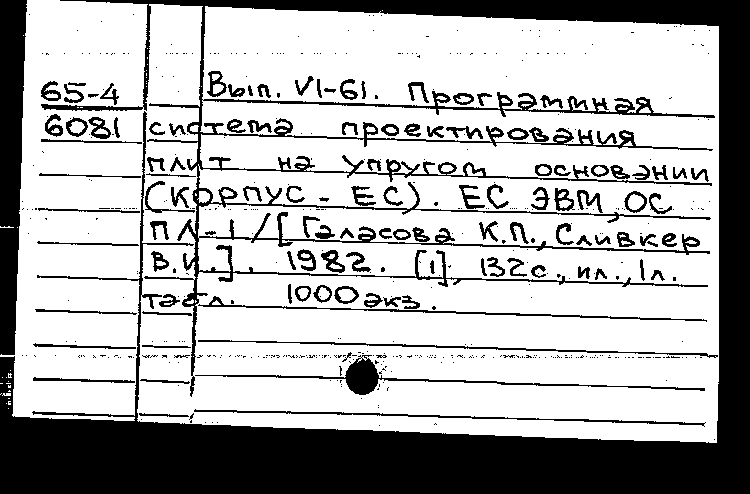 65-4 Вып. VI-61. Программная
6081 система проектирования
плит на упругом основании
(КОРПУС - ЕС). ЕС ЭВМ, ОС
ПЛ-1 /[Галасова К.П., Сливкер
В.И.]. 1982. [1], 132с., ил., 1л.
табл. 1000 экз.